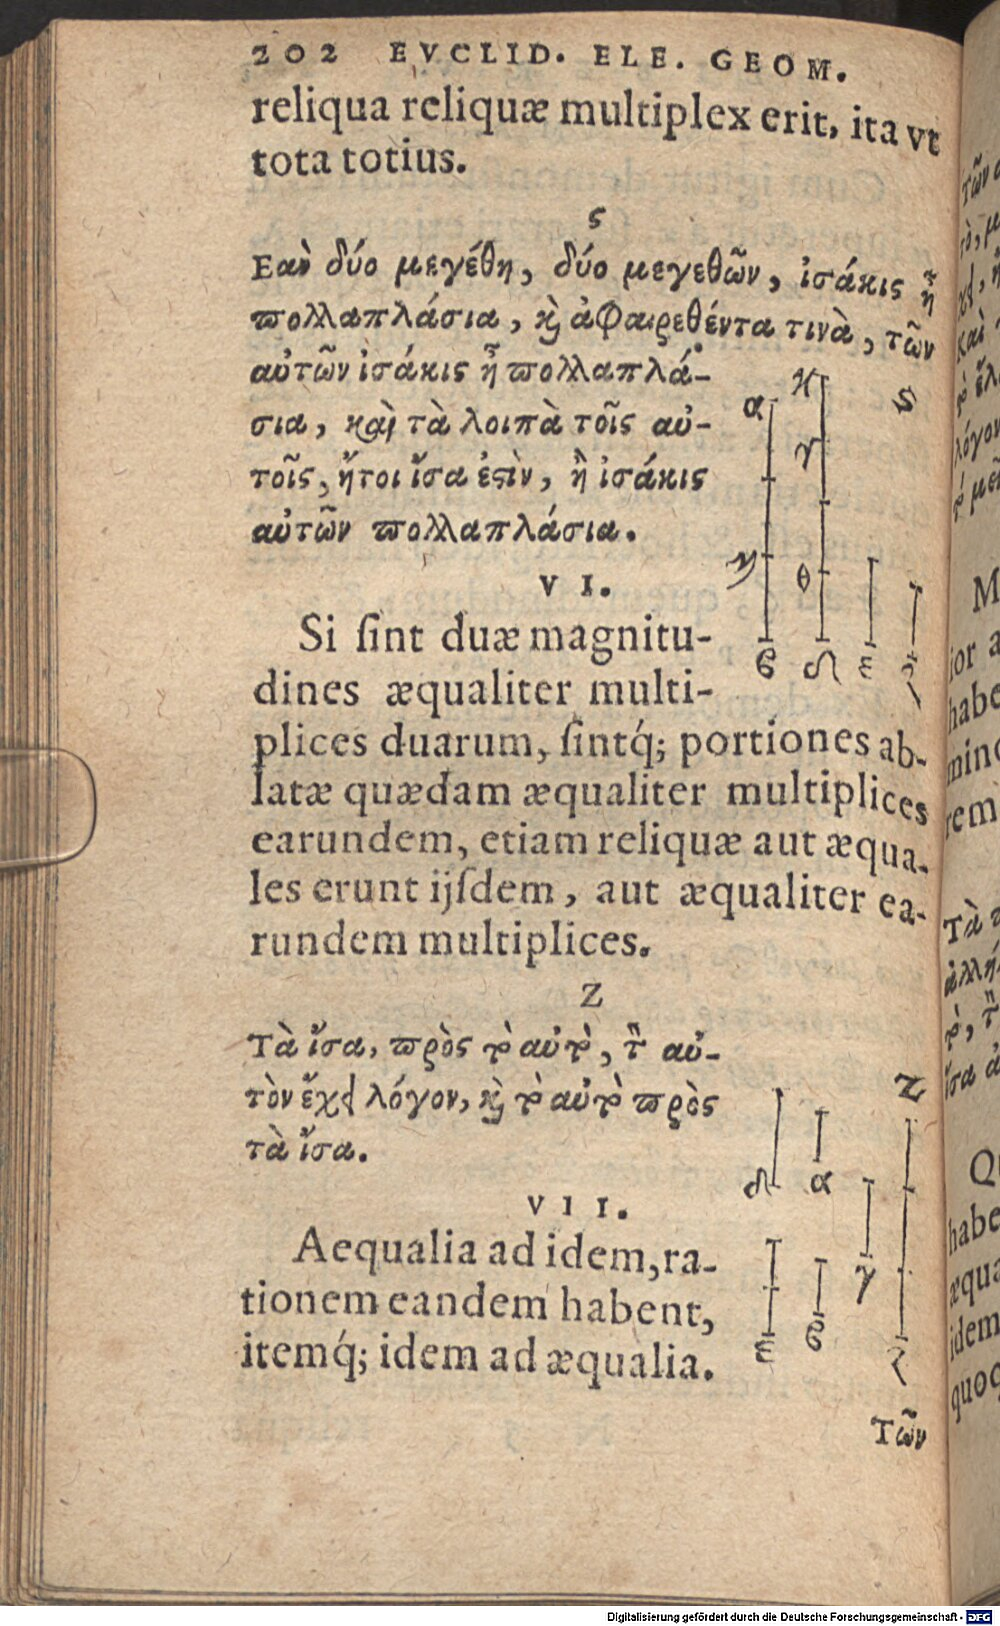 202 EVCLID. ELE. GEOM.
reliqua reliquæ multiplex erit, ita vt
tota totius.
ς
Εὰν δύο μεγέθη, δύο μεγεθῶν, ἰσάκις ἦ
πολλαπλάσια, κỳ ἀφαιρεθέντα τινὰ, τῶν
αὐτῶν ἰσάκις ἦ πολλαπλά-
σια, καὶ τὰ λοιπὰ τοῖς αὐ-
τοῖς, ἤτοι ἴσα ἐστὶν, ἢ ἰσάκις
αὐτῶν πολλαπλάσια.
α κ ς
γ
η θ
β δ ε ζ
VI.
Si ſint duæ magnitu-
dines æqualiter multi-
plices duarum, ſintq́; portiones ab-
latæ quædam æqualiter multiplices
earundem, etiam reliquæ aut æqua-
les erunt ijſdem, aut æqualiter ea-
rundem multiplices.
Z
Τὰ ἴσα, πρὸς τὸ αὐτὸ, τὸν αὐ-
τὸν ἔχει λόγον, κỳ τὸ αὐτὸ πρὸς
τὰ ἴσα.
Z
δ α
γ
ε β ζ
VII.
Aequalia ad idem, ra-
tionem eandem habent,
itemq́; idem ad æqualia.
Τῶν
Digitalisierung gefördert durch die Deutsche Forschungsgemeinschaft - DFG